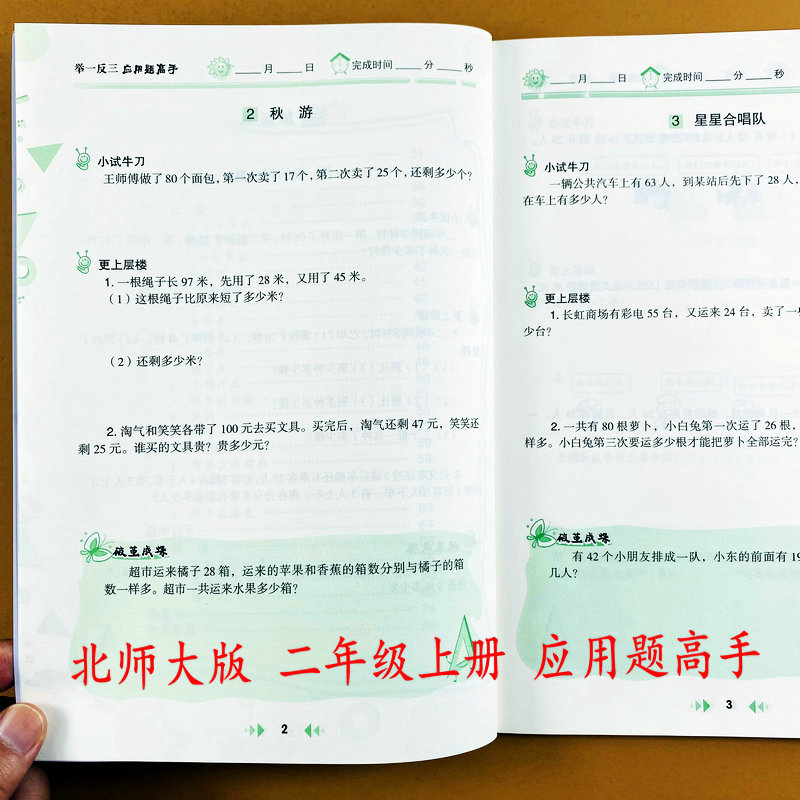 举一反三 应用题高手 ____月____日 完成时间____分____秒
2 秋 游
小试牛刀
王师傅做了 80 个面包，第一次卖了 17 个，第二次卖了 25 个，还剩多少个？
更上层楼
1. 一根绳子长 97 米，先用了 28 米，又用了 45 米。
（1）这根绳子比原来短了多少米？
（2）还剩多少米？
2. 淘气和笑笑各带了 100 元去买文具。买完后，淘气还剩 47 元，笑笑还
剩 25 元。谁买的文具贵？贵多少元？
破茧成蝶
超市运来橘子 28 箱，运来的苹果和香蕉的箱数分别与橘子的箱
数一样多。超市一共运来水果多少箱？
2
____月____日 完成时间____分____秒
3 星星合唱队
小试牛刀
一辆公共汽车上有 63 人，到某站后先下了 28 人，
在车上有多少人？
更上层楼
1. 长虹商场有彩电 55 台，又运来 24 台，卖了一些
少台？
2. 一共有 80 根萝卜，小白兔第一次运了 26 根，
样多。小白兔第三次要运多少根才能把萝卜全部运完？
破茧成蝶
有 42 个小朋友排成一队，小东的前面有 19
几人？
3
北师大版 二年级上册 应用题高手